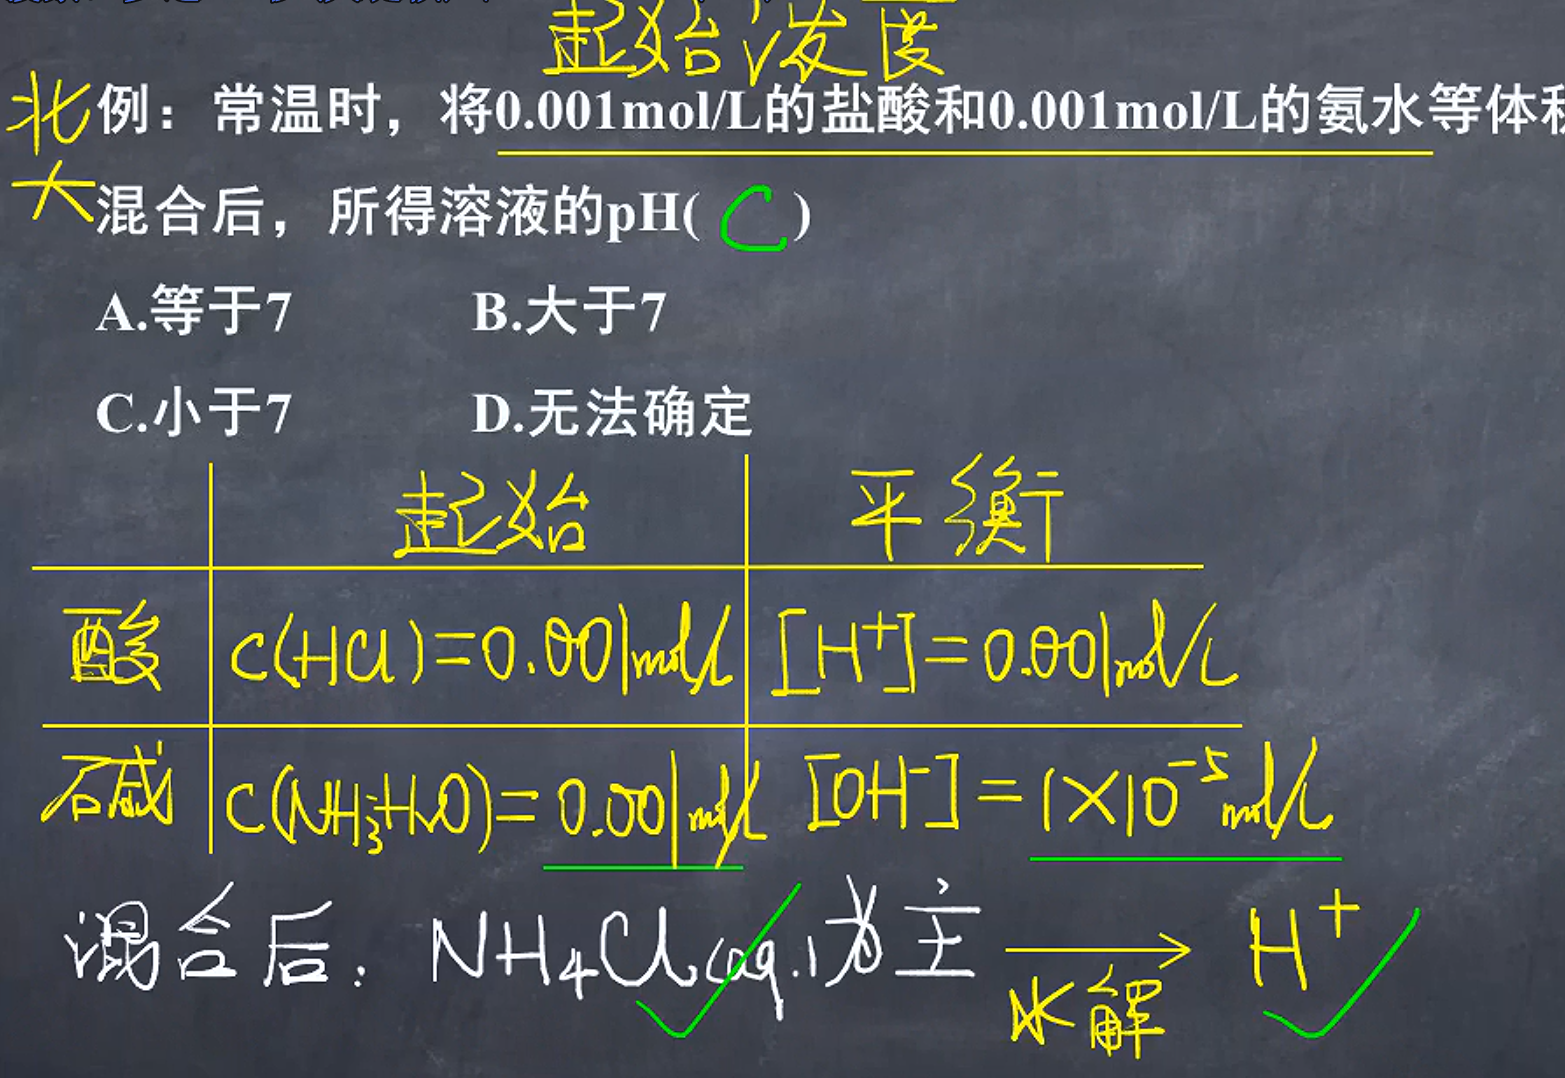 起始浓度
北 例：常温时，将0.001mol/L的盐酸和0.001mol/L的氨水等体积
大 混合后，所得溶液的pH( C )
A.等于7 B.大于7
C.小于7 D.无法确定
起始 平衡
酸 C(HCl)=0.001mol/L [H⁺]=0.001mol/L
碱 C(NH₃·H₂O)=0.001mol/L [OH⁻]=1×10⁻⁵mol/L
混合后：NH₄Cl(aq.)为主 → H⁺
水解